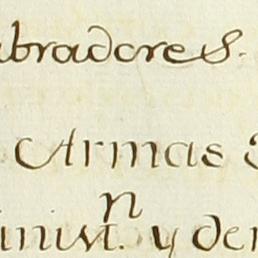 abradores.
Armas
inist.n y de